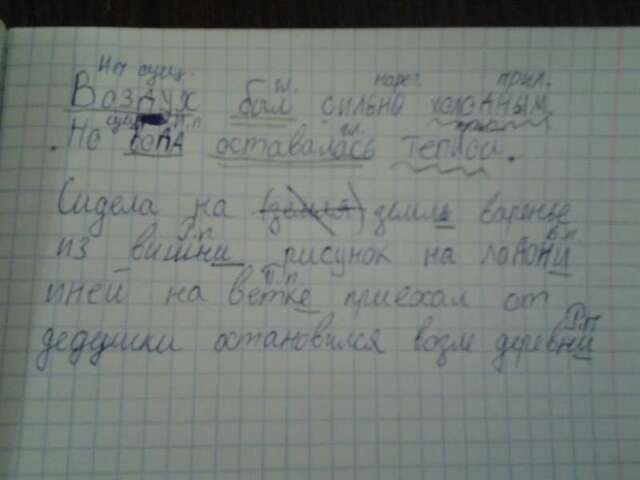 сущ. гл. нареч. прил.
Воздух был сильно холодным
сущ. И.п гл. прил.
. Но вода оставалась теплой.
Сидела на (земля) земле варенье
из вишни рисунок на ладони
П.п
иней на ветке приехал от
Р.п
дедушки остановился возле деревни